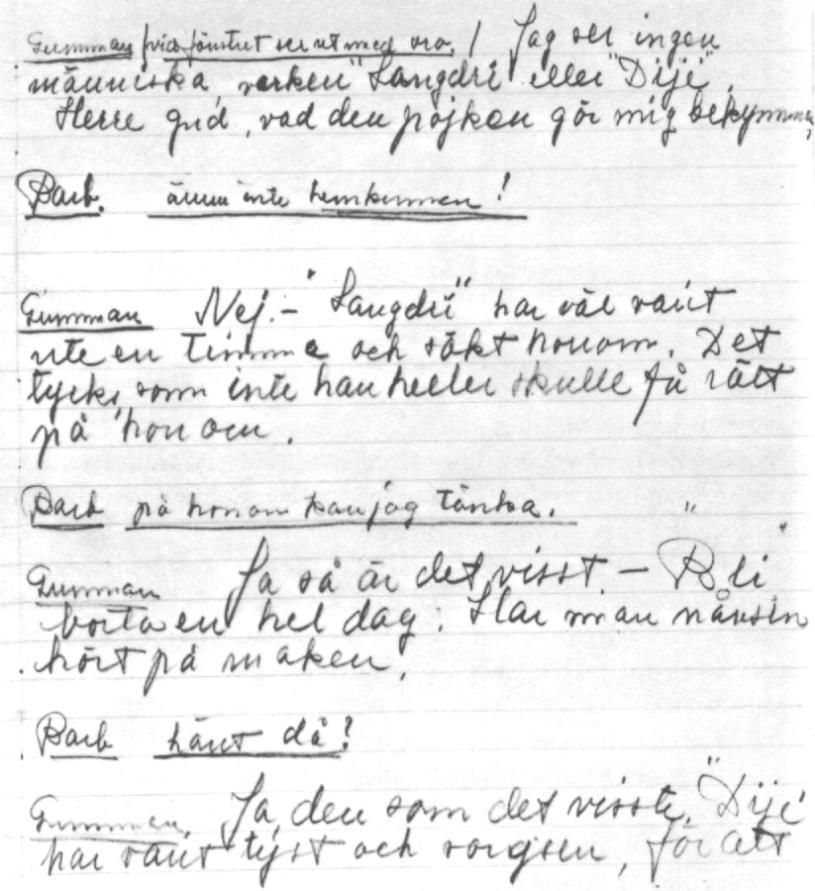 Gumman (vid fönstret ser ut med oro.) Jag ser ingen
människa, varken "Langdri" eller "Diji".
Herre gud, vad den pojken gör mig bekymmer,
Barb. ännu inte hemkommen!
Gumman Nej. – "Langdri" har väl varit
ute en timme och sökt honom. Det
tycks som inte han heller skulle få rätt
på honom.
Barb på honom kan jag tänka.
Gumman Ja så är det visst – Bli
borta en hel dag. Har man nånsin
hört på maken.
Barb hänt då?
Gumman. Ja, den som det visste. "Diji"
har varit tyst och sorgsen, för att